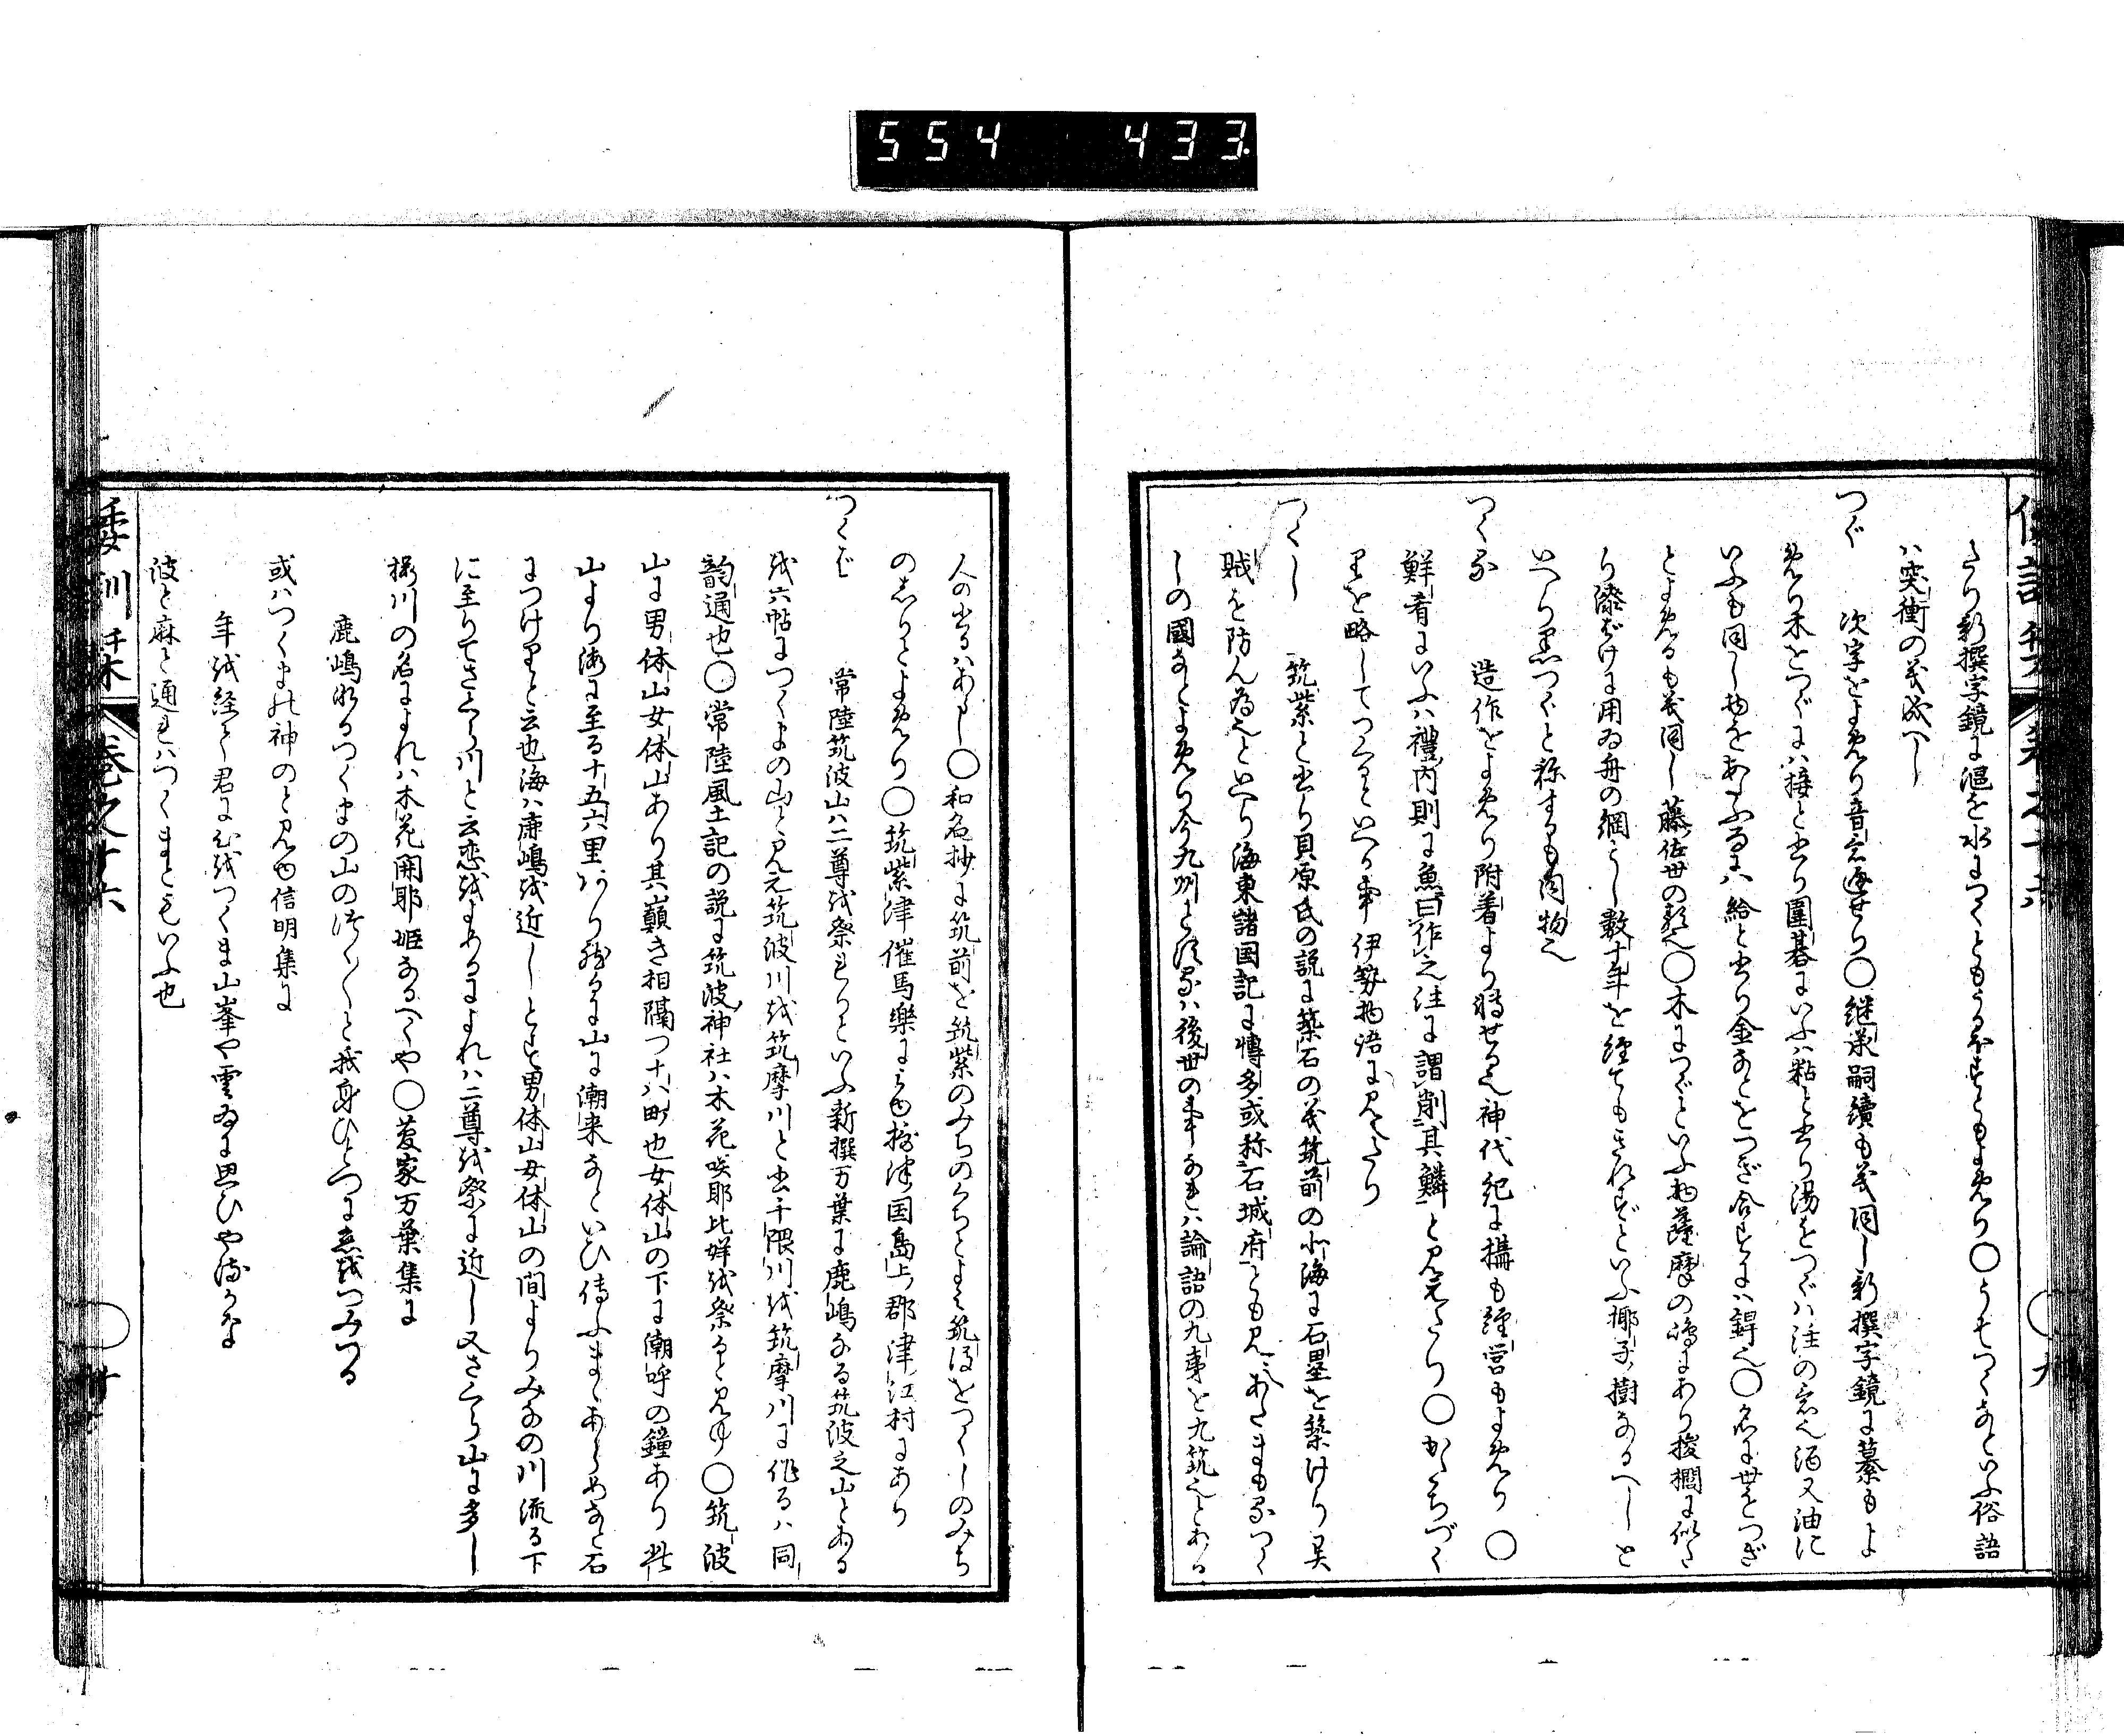 554 433.
たり新撰字鏡に漚を水につくともうるほすともよめり〇うそつくなといふ俗語
ハ突衝の義成へし
つぐ 次字をよめり音も通せり〇継承嗣續も義同し新撰字鏡に纂もよ
めり木をつぐにハ接と書り圍碁にいふハ粘と書り湯をつぐハ注の意也酒又油に
いふも同し物をあふるにハ給と書り金なとをつぎ合すにハ銲也〇名に世をつぎ
とよめるも義同し藤佐世の類也〇木につぐといふ物薩摩の嶋にあり椶櫚に似た
り漆ばけに用ゐ舟の綱とし数十年を経てもきれずといふ椰子樹なるへしと
いへり黒つぐと称するも同物也
つくる 造作をよめり附着より轉せる也神代紀に攝も経営もよめり〇
鮮肴にいふハ禮内則に魚曰作之注に謂削其鱗と見えたり〇かたちづく
りを略してつくるといへる事伊勢物語に見えたり
つくし 筑紫と書り貝原氏の説に築石の義筑前の北海に石壘を築けり異
賊を防ん為也といへり海東諸国記に博多或称石城府とも見ゆ
しの國なとよめり今九州と注るハ後世の事なれハ論語の九夷を九筑也とある
人の書るハあし〇和名抄に筑前を筑紫のみちのくちとよみ筑後をつくしのみち
のしりとよめり〇筑紫津催馬樂に見ゆ摂津国島上郡津江村にあり
つくば 常陸筑波山ハ二尊を祭れりといふ新撰万葉に鹿嶋なる筑波之山とある
を六帖につくまの山と見え筑波川を筑摩川と書千隈川を筑摩川に作るハ同
韵通也〇常陸風土記の説に筑波神社ハ木花咲耶比咩を祭ると見ゆ〇筑波
山に男体山女体山あり其巓き相隔つ十八町也女体山の下に潮呼の鐘あり此
山より海に至る十五六里あり然るに山に潮来なといひ傳ふまゝあらめなと石
につけりと云也海ハ鹿嶋を近しとす男体山女体山の間よりみなの川流る下
に至りてさくら川と云恋をよめるによれハ二尊を祭に近し又さくら山に多し
桜川の名によれハ木花開耶姫なるへくや〇菅家万葉集に
鹿嶋なるつくまの山のつく〳〵と我身ひとつに恋をつみつる
或ハつくまの神のと見ゆ信明集に
年を経て君に恋をつくま山峯や雲ゐに思ひやるかな
波と麻と通れハつくまともいふ也
倭訓栞 巻之十六